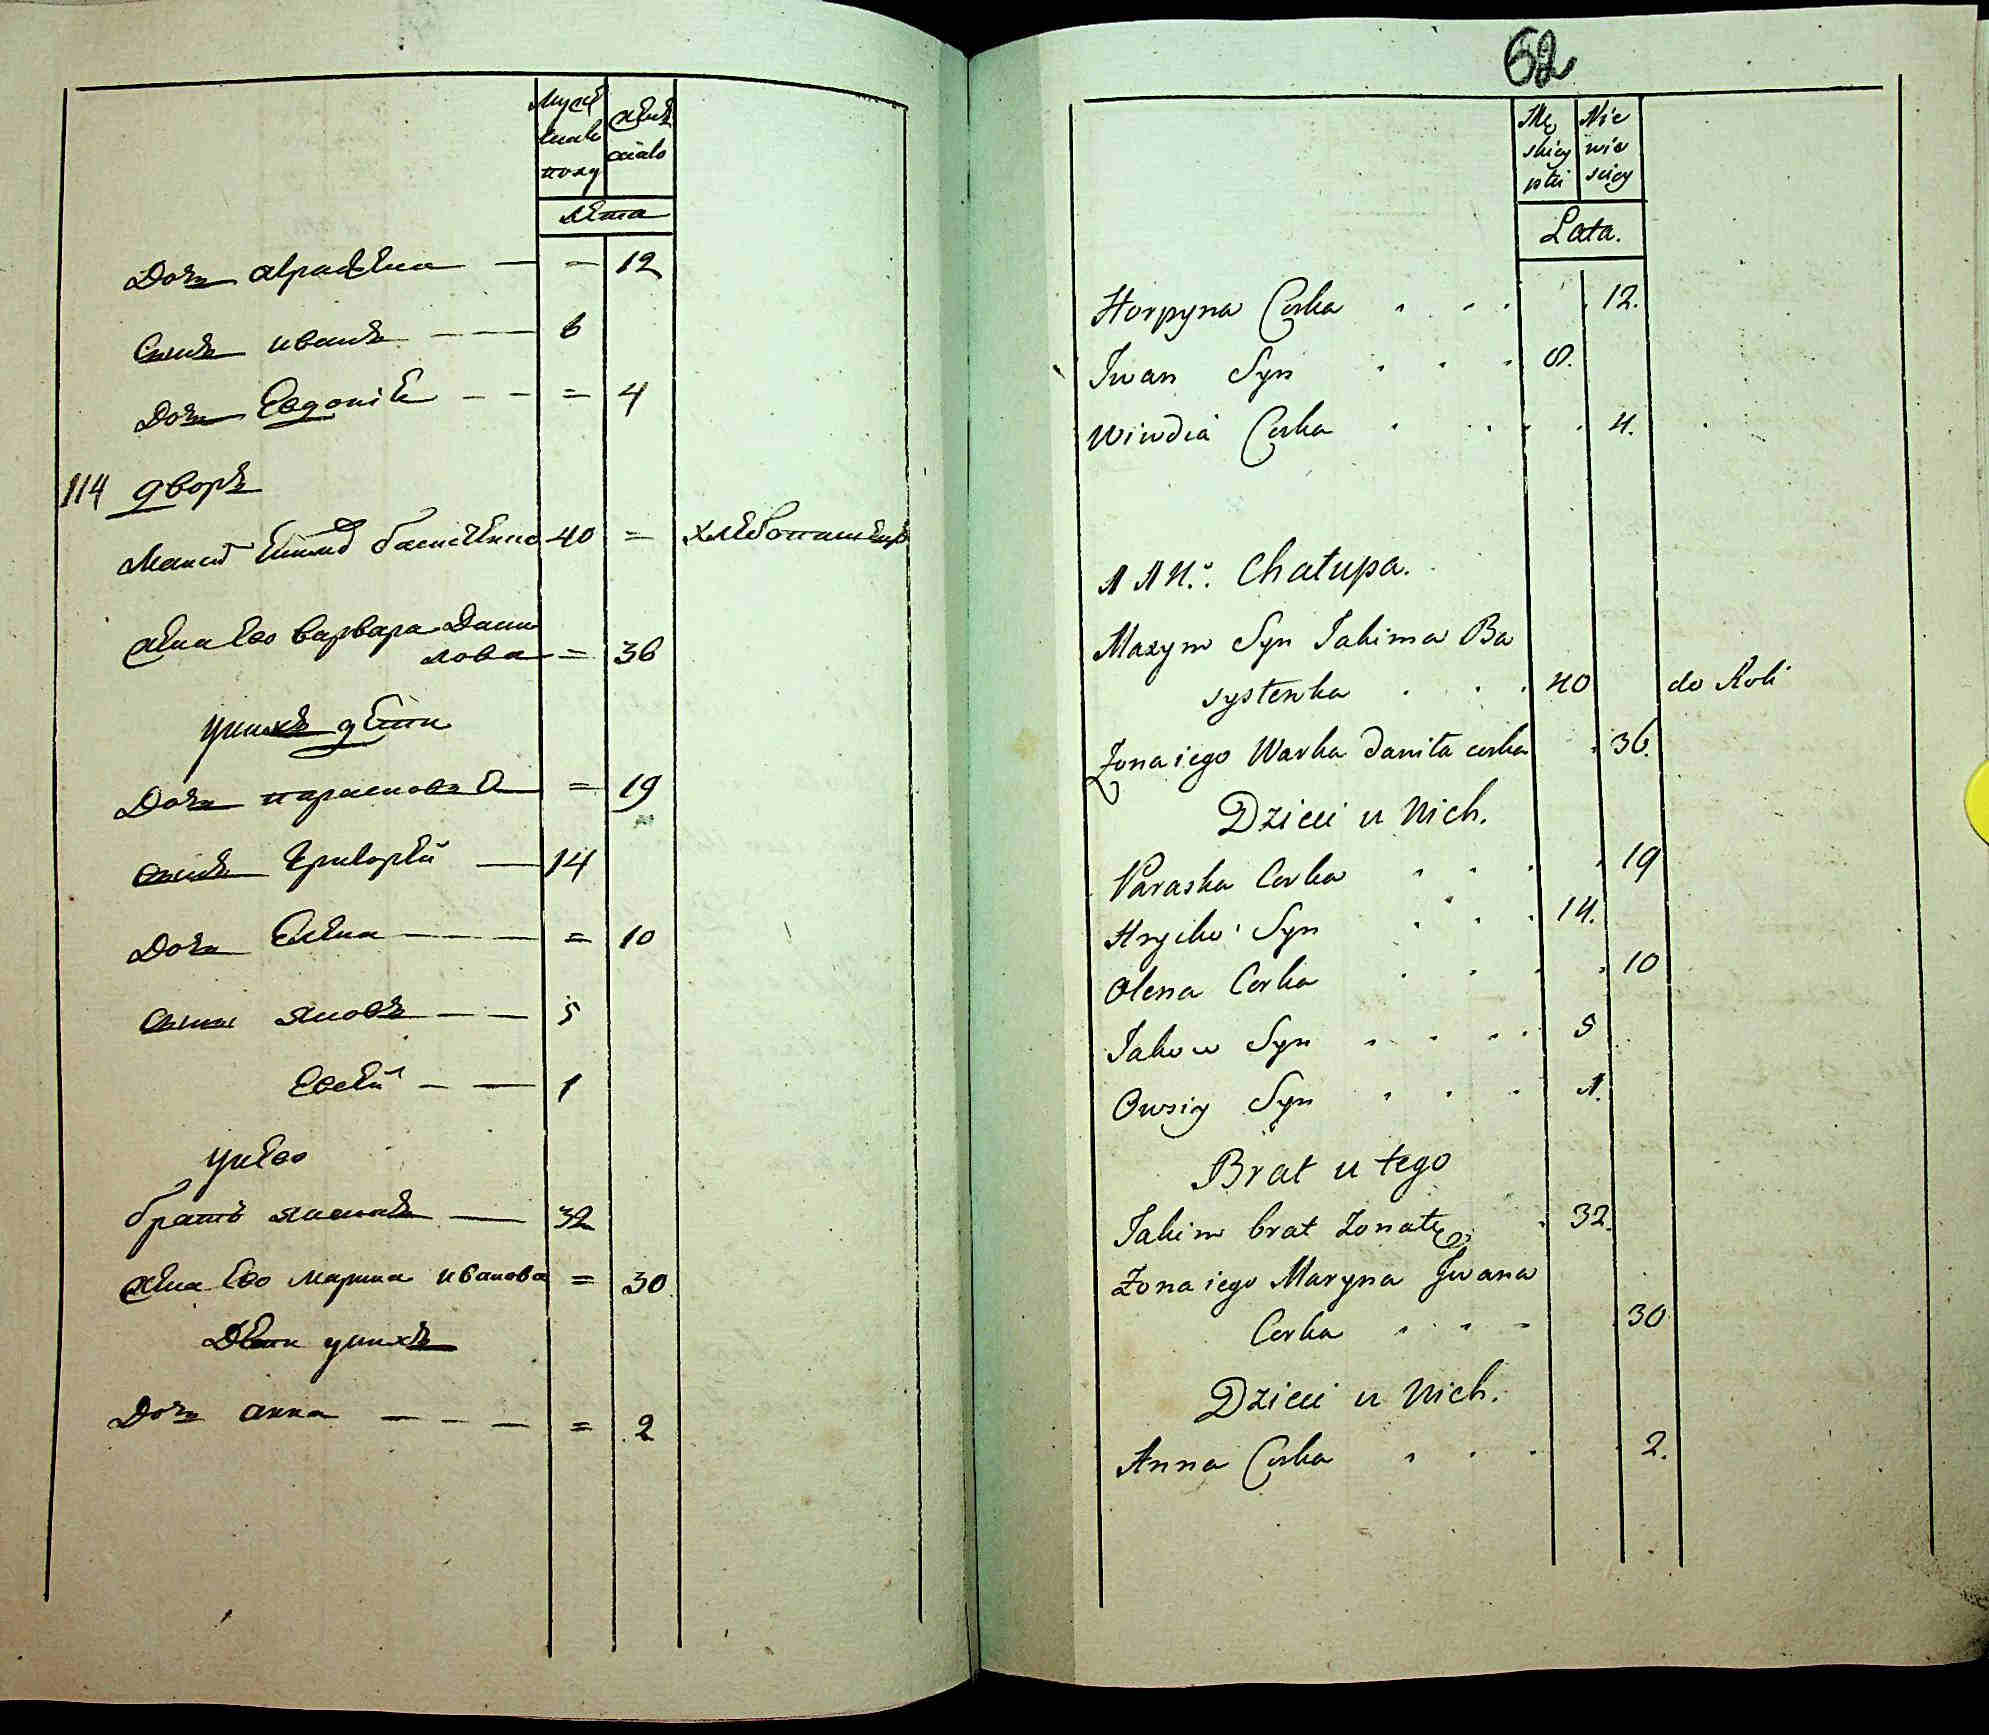 Мужеска полу
Женскаго
лета
Дочь аграфена — = 12
Сынъ иванъ — — 6
Дочь Евдокия — — = 4
114 дворъ
Максимъ Екимовъ басистенко 40 = хлебопашецъ
Жена Ево варвара Дани
лова = 36
У них дети
Дочь парасковья = 19
Сынъ Григорей — 14
Дочь Елена — — = 10
Сыны яковъ — — 5
Евсей — — 1
У нево
братъ якимъ — 32
Жена Ево марина иванова = 30
Дети у них
Дочь анна — — — = 2
62
Mę
skiey
płci
Nie
wie
sciey
Lata.
Horpyna Corka . . . 12.
Iwan Syn . . . 8.
Wiwdia Corka . . . 4.
114.: Chałupa.
Maxym Syn Jakima Ba
systenka . . . 40 do Roli
Żona iego Warka Daniła corka 36.
Dzieci u Nich.
Paraska Corka . . . 19
Hryćko Syn . . . 14.
Olena Corka . . . 10
Jakow Syn . . . . 5
Owsiy Syn . . . 1.
Brat u tego
Jakim brat Żonaty . 32.
Żona iego Maryna Iwana
Corka . . . 30
Dzieci u Nich.
Anna Corka . . . 2.